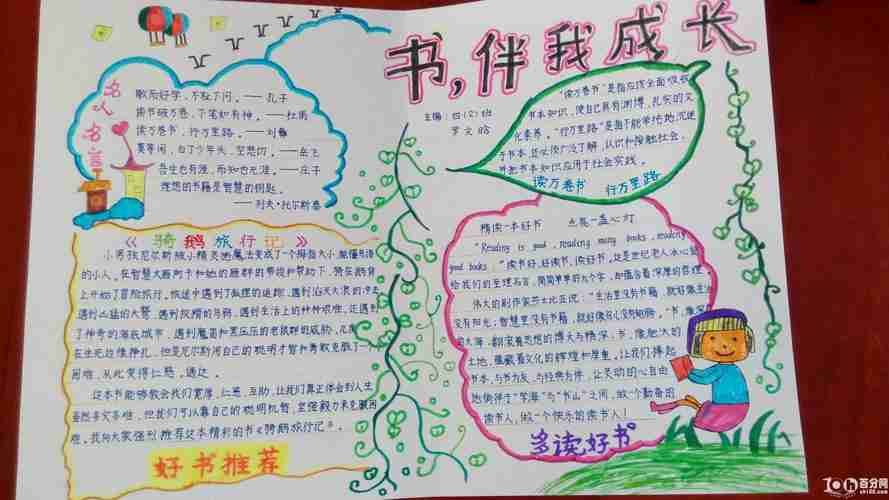 书,伴我成长
主编:四(2)班
罗文晗
名人名言
敏而好学,不耻下问。——孔子
读书破万卷,下笔如有神。——杜甫
读万卷书,行万里路。——刘彝
莫等闲,白了少年头,空悲切。——岳飞
吾生也有涯,而知也无涯。——庄子
理想的书籍是智慧的钥匙。
——列夫·托尔斯泰
“读万卷书”是指应该全面吸收
书本知识,使自己具有渊博,扎实的文
化素养。“行万里路”是指不能单纯地沉迷
于书本,还必须广泛了解,认识和接触社会,
并把书本知识应用于社会实践。
读万卷书 行万里路
《骑鹅旅行记》
小男孩尼尔斯被小精灵施魔法变成了一个拇指大小,能懂鸟语
的小人,在智慧大雁阿卡和她的雁群的帮助和帮助下,骑在鹅背
上开始了冒险旅行。旅途中遇到了狐狸的追踪,遇到滔天大浪的冲击
遇到凶猛的大鹫,遇到狡猾的乌鸦,遇到生活上的种种艰难,还遇到
了神奇的海底城市,遇到魔笛和黑压压的老鼠群的威胁,几次
在生死边缘挣扎,但是尼尔斯用自己的聪明才智和勇敢克服了一个
困难,从此变得仁慈,通达。
这本书能够教会我们宽厚、仁慈、互助,让我们真正体会到人生
虽然多灾多难,但我们可以靠自己的聪明机智,坚强毅力来克服困
难。我向大家强烈推荐这本精彩的书《骑鹅旅行记》。
好书推荐
精读一本好书 点亮一盏心灯
“Reading is good, reading many books, reading
good books。”“读书好,读好书,读好书,”这是世纪老人冰心送
给我们的至理名言,简简单单的九个字,却蕴含着深厚的哲理。
伟大的剧作家莎士比亚说:“生活里没有书籍,就好像生活
没有阳光;智慧里没有书籍,就好像鸟儿没有翅膀。”书,像深沉
的大海,翻滚着思想的博大与精深;书,像肥沃的
土地,蕴藏着文化的辉煌和厚重,让我们捧起
书本,与书为友,与经典为伴,让灵动的心自由
地徜徉于“学海”与“书山”之间,做一个勤奋的
读书人,做一个快乐的读书人!
多读好书
百分网